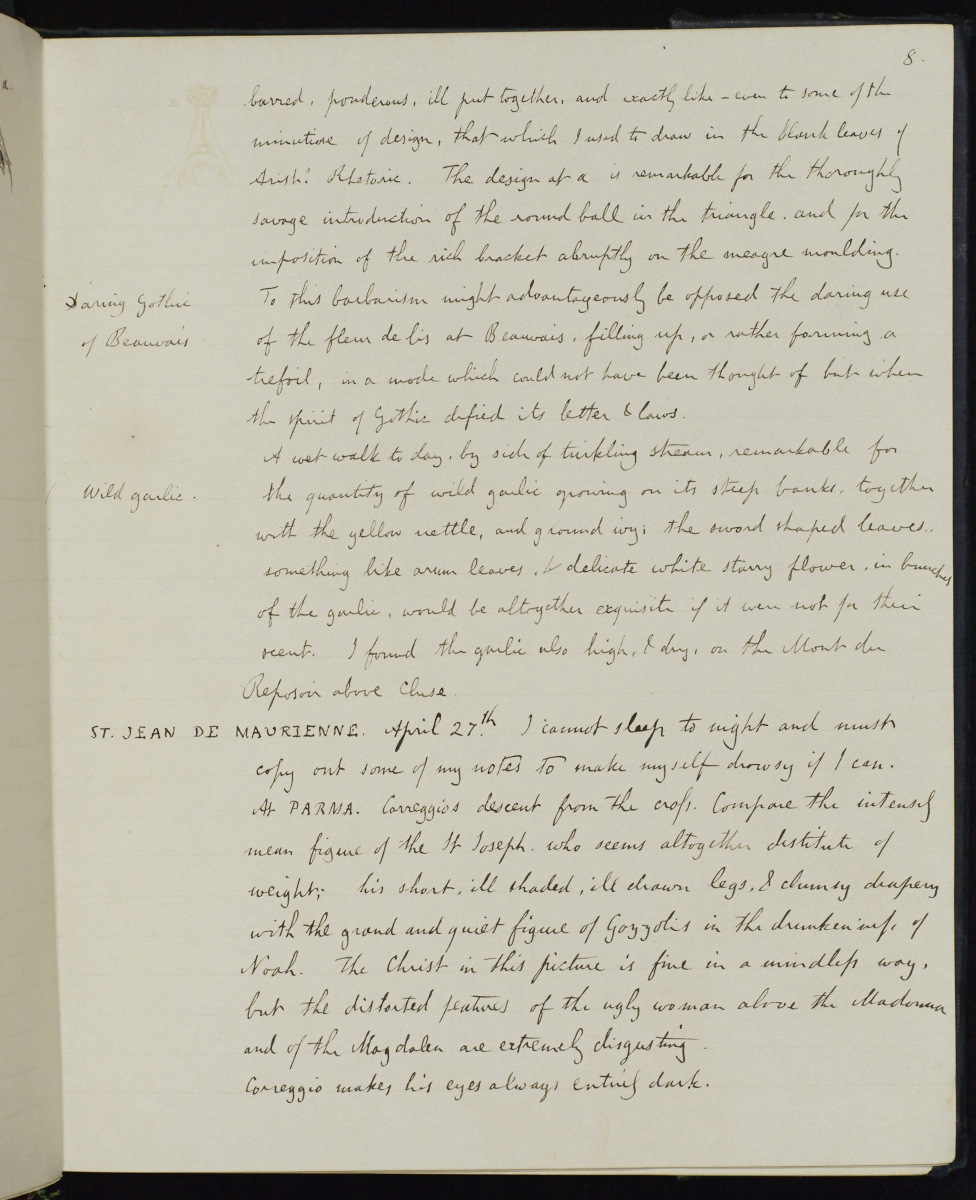 8.
barred, ponderous, ill put together, and exactly like - even to some of the
minutiae of design, that which I used to draw in the blank leaves of
Arist: Rhetoric. The design at a is remarkable for the thoroughly
savage introduction of the round ball in the triangle. and for the
imposition of the rich bracket abruptly on the meagre moulding.
Daring Gothic
of Beauvais
To this barbarism might advantageously be opposed the daring use
of the fleur de lis at Beauvais, filling up, or rather forming a
trefoil, in a mode which could not have been thought of but when
the spirit of Gothic defied its letter & laws.
A wet walk to day, by side of tinkling stream, remarkable for
Wild garlic.
the quantity of wild garlic growing on its steep banks, together
with the yellow nettle, and ground ivy; the sword shaped leaves..
something like arum leaves, & delicate white starry flower, in bunches
of the garlic, would be altogether exquisite if it were not for their
scent. I found the garlic also high, & dry, on the Mont du
Reposoir above Cluse.
ST. JEAN DE MAURIENNE. April 27th. I cannot sleep to night and must
copy out some of my notes to make myself drowsy if I can.
At PARMA. Correggios descent from the cross. Compare the intensely
mean figure of the St Joseph. who seems altogether destitute of
weight; his short, ill shaded, ill drawn legs, & clumsy drapery
with the grand and quiet figure of Gozzolis in the drunkenness of
Noah. The Christ in this picture is fine in a mindless way,
but the distorted features of the ugly woman above the Madonna
and of the Magdalen are extremely disgusting.
Correggio makes his eyes always entirely dark.